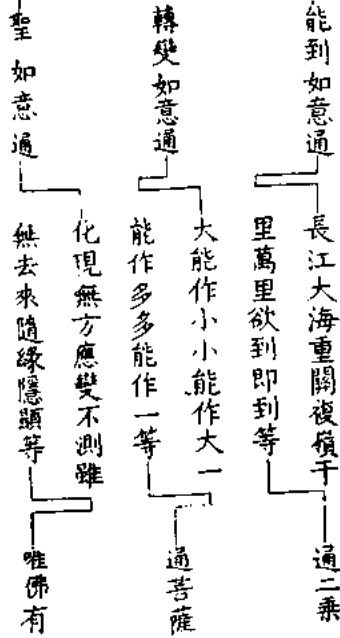 能到如意通
長江大海重關複嶺千
里萬里欲到即到等
通二乘
轉變如意通
大能作小小能作大一
能作多多能作一等
通菩薩
聖如意通
化現無方應變不測雖
無去來隨緣隱顯等
唯佛有